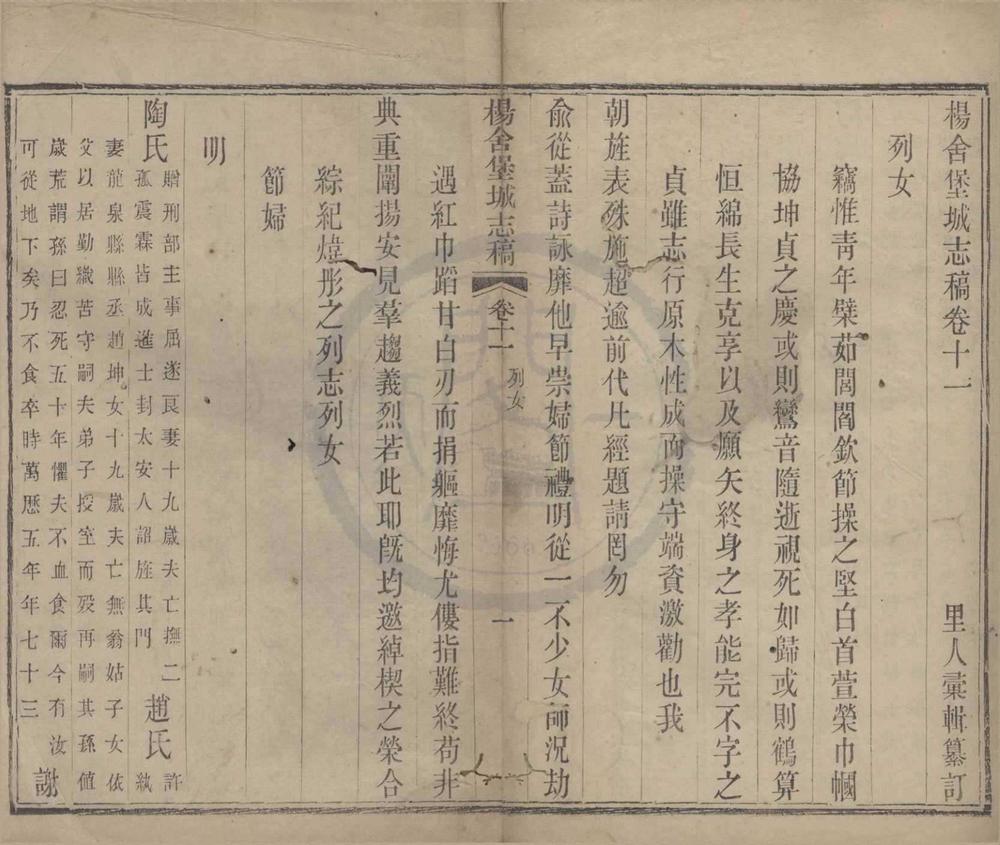 楊舍堡城志稿卷十一
里人彙輯纂訂
列女
竊惟靑年櫱茹閭閻欽節操之堅白首萱榮巾幗
協坤貞之慶或則鸞音隨逝視死如歸或則鶴算
恒綿長生克享以及願矢終身之孝能完不字之
貞雖志行原木性成而操守端資激勸也我
朝旌表殊施超逾前代凡經題請罔勿
兪從蓋詩詠靡他早崇婦節禮明從一不少女師況劫
楊舍堡城志稿
卷十一
列女
一
遇紅巾蹈甘白刃而捐軀靡悔尤僂指難終苟非
典重闡揚安見羣趨義烈若此耶旣均邀綽楔之榮合
綜紀煒彤之列志列女
節婦
明
陶氏
贈刑部主事屈遂良妻十九歲夫亡撫二
孤震霖皆成進士封太安人詔旌其門
趙氏
許
紈
妻龍泉縣縣丞趙坤女十九歲夫亡無翁姑子女依
父以居勤織苦守嗣夫弟子授室而歿再嗣其孫值
歲荒謂孫曰忍死五十年懼夫不血食爾今有汝
可從地下矣乃不食卒時萬歷五年年七十三
謝